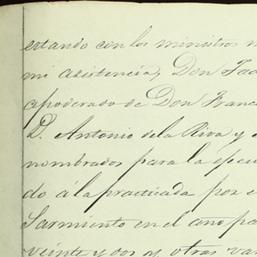 estando con los ministros
mi asistencia, Don
apoderado de Don Franc
D. Antonio de la Riva y
nombrados para la
do á la practicada por
Sarmiento en el ano pa
veinte y dos y otras va